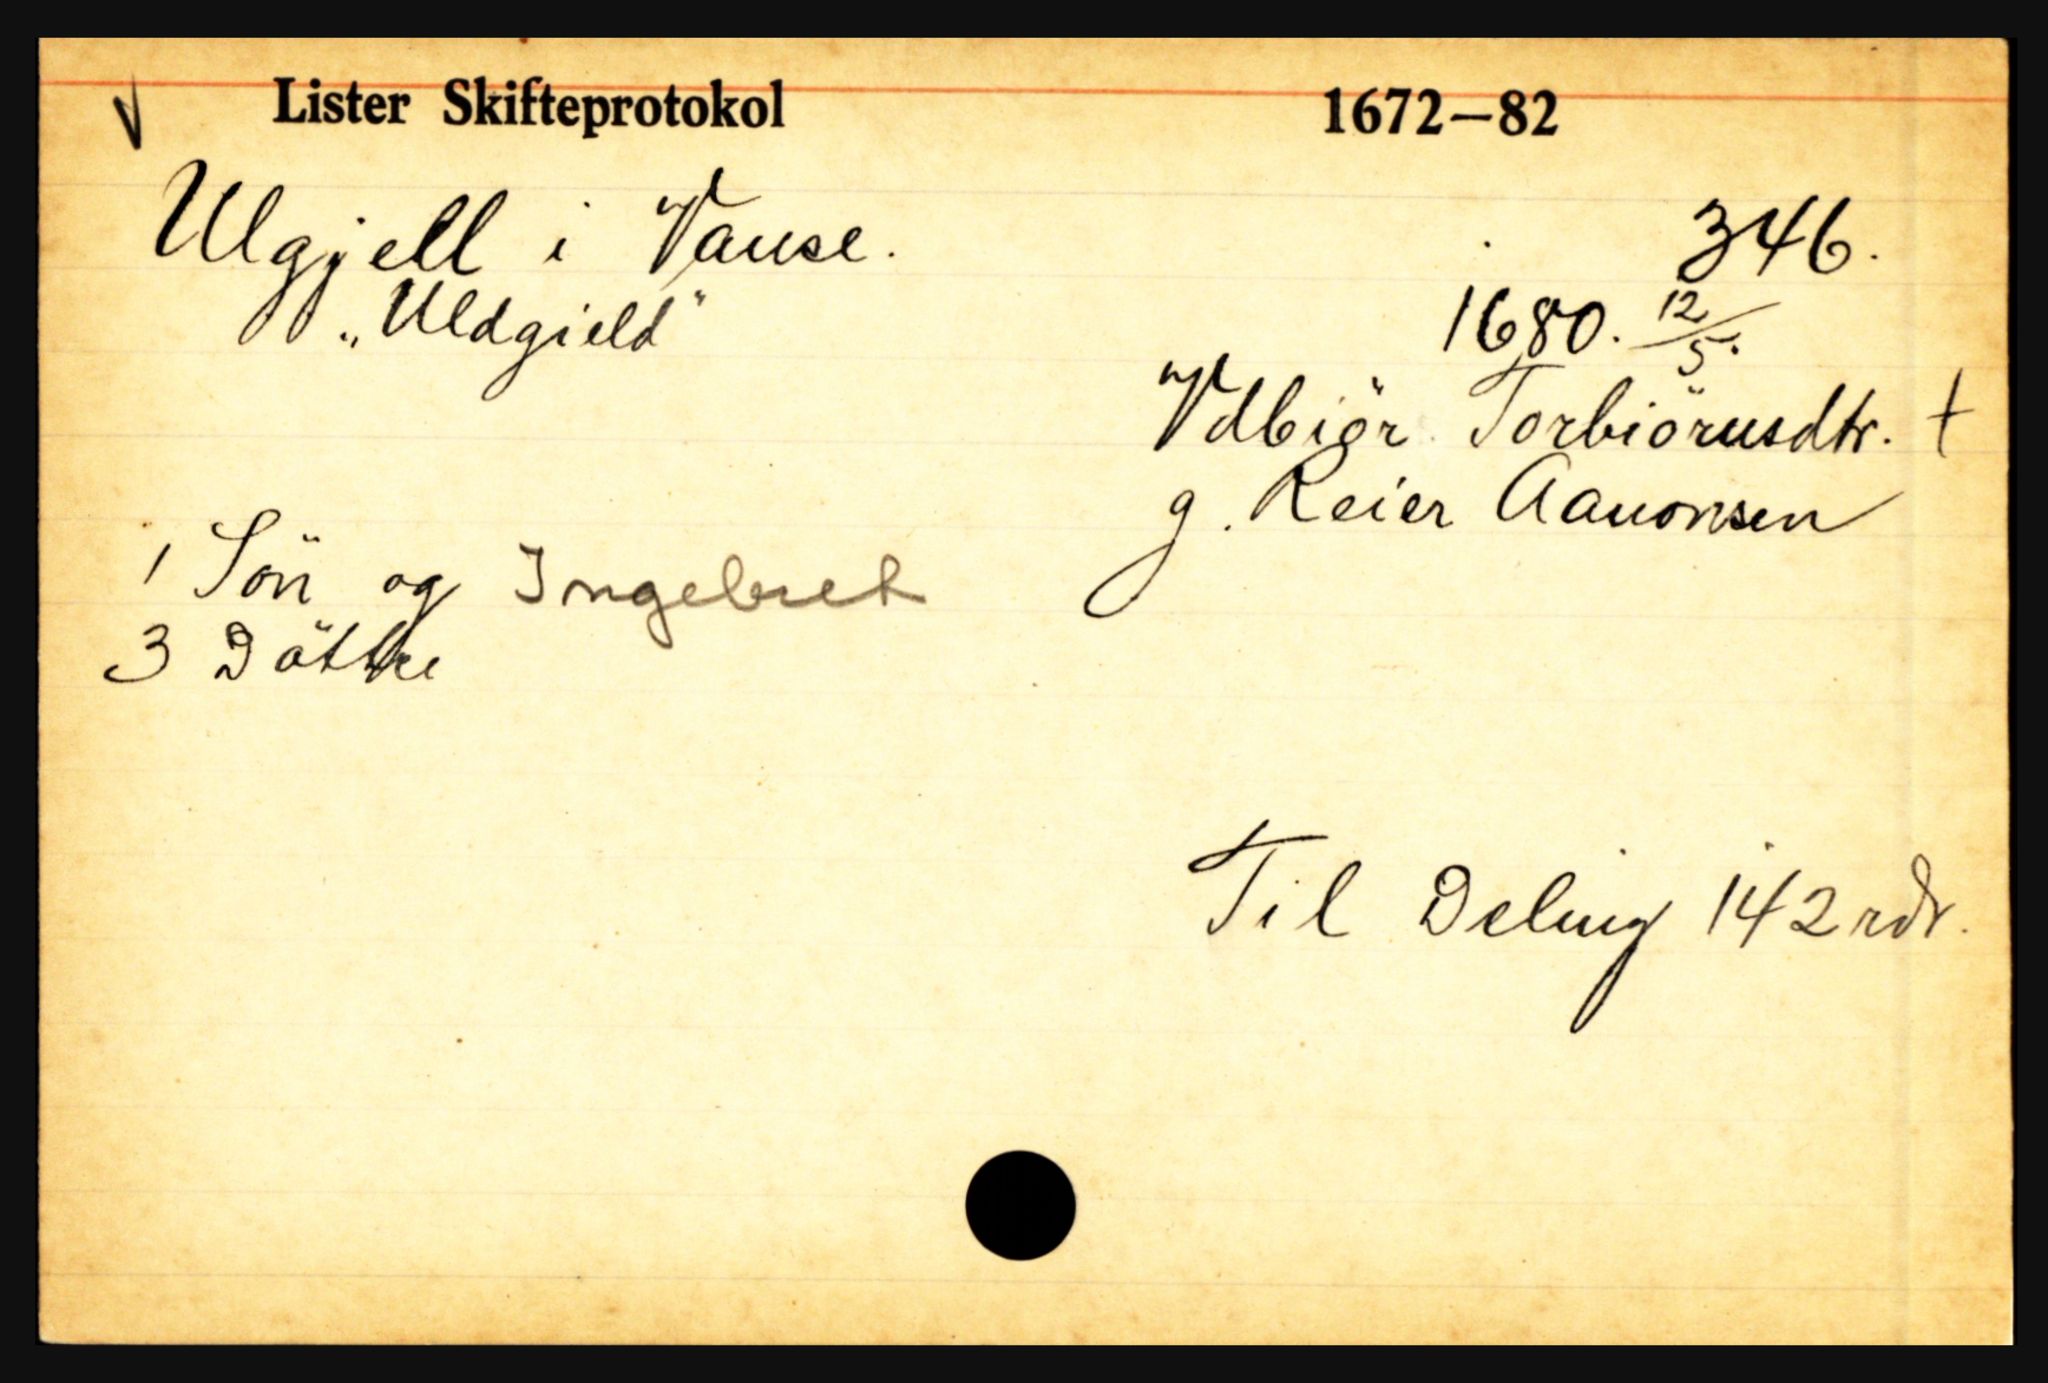 Lister Skifteprotokol 1672—82
Ulgjell i Vanse. 346.
„Uldgield" 1680. 12/5.
Vdbiör Torbiörnsdtr. †
g. Reier Aanonsen
1 Sön og Ingebret
3 Döttre
Til Deling 142 rdr.